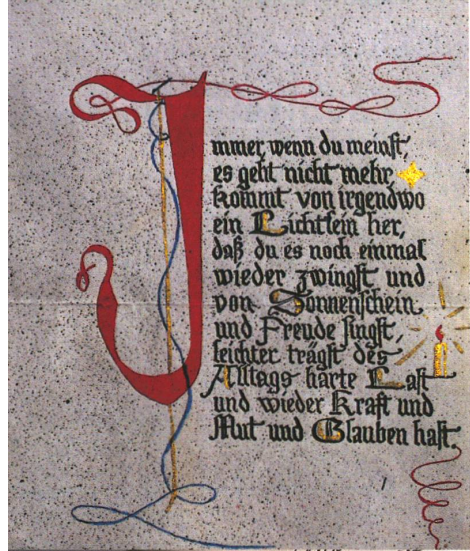 Immer, wenn du meinst,
es geht nicht mehr
kommt von irgendwo
ein Lichtlein her,
daß du es noch einmal
wieder zwingst und
von Sonnenschein
und Freude singst,
leichter trägst des
Alltags harte Last
und wieder Kraft und
Mut und Glauben hast.